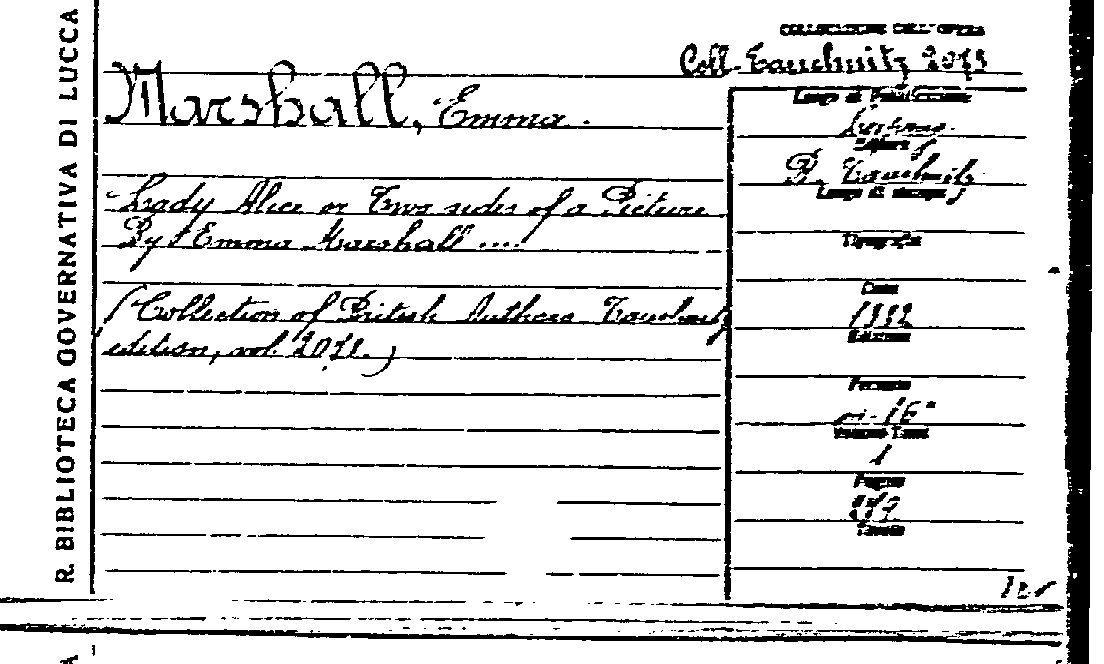 R. BIBLIOTECA GOVERNATIVA DI LUCCA
COLLOCAZIONE DELL'OPERA
Coll. Tauchnitz 2073
Marshall, Emma.
Lady Alice or Two sides of a Picture
By Emma Marshall ....
(Collection of British Authors Tauchnitz
edition, vol.
Luogo di Pubblicazione
Editore
B. Tauchnitz
Luogo di stampa
Tipografia
Data
1882
Edizione
Formato
in-16°
Volume-Tomi
1
Pagine
Tavole